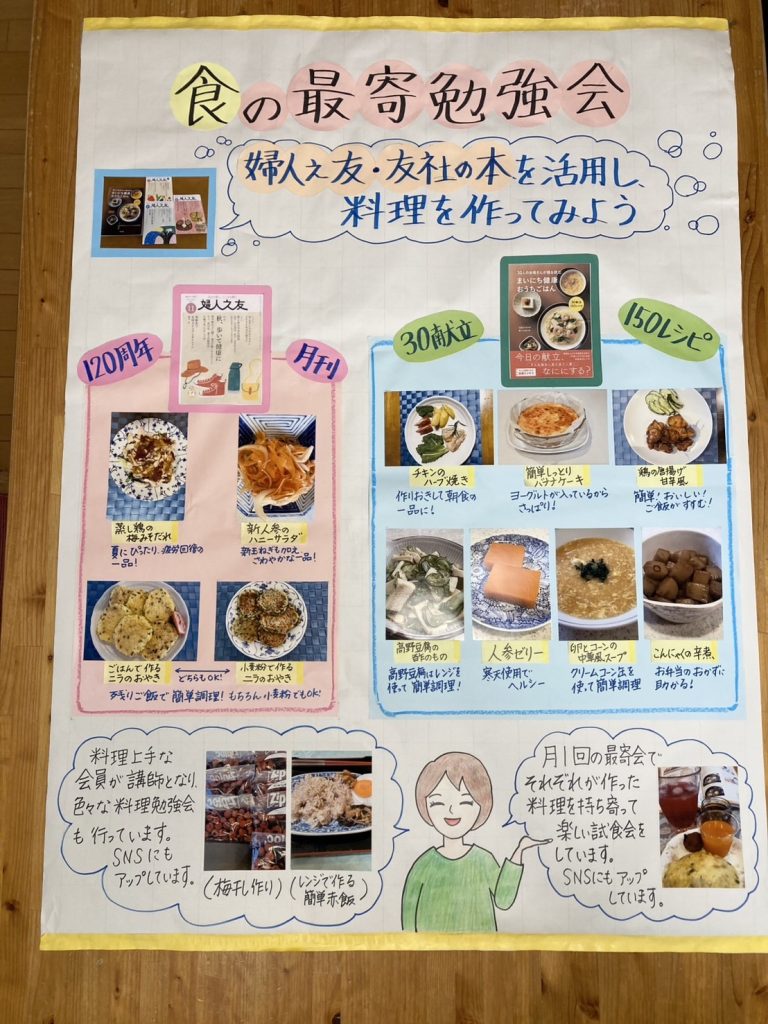 食の最寄勉強会
婦人之友・友社の本を活用し、
料理を作ってみよう
120周年
月刊
婦人之友
11
秋、歩いて健康に
30献立
150レシピ
まいにち健康
おうちごはん
今日の献立、
なににする?
蒸し鶏の
梅みそだれ
夏にぴったり、疲労回復の
一品!
新人参の
ハニーサラダ
新玉ねぎも加え、
さわやかな一品!
ごはんで作る
ニラのおやき
どちらもOK!
小麦粉で作る
ニラのおやき
残りご飯で簡単調理!もちろん小麦粉でもOK!
チキンの
ハーブ焼き
作りおきして朝食の
一品に!
簡単しっとり
バナナケーキ
ヨーグルトが入っているから
さっぱり!
鶏の唐揚げ
甘辛風
簡単!おいしい!
ご飯がすすむ!
高野豆腐の
酢のもの
高野豆腐はレンジを
使って簡単調理!
人参ゼリー
寒天使用で
ヘルシー
卵とコーンの
中華風スープ
クリームコーン缶を
使って簡単調理
こんにゃくの辛煮、
お弁当のおかずに
助かる!
料理上手な
会員が講師となり、
色々な料理勉強会
も行っています。
SNSにも
アップしています。
(梅干し作り)
(レンジで作る
簡単赤飯)
月1回の最寄会で
それぞれが作った
料理を持ち寄って
楽しい試食会を
しています。
SNSにもアップ
しています。